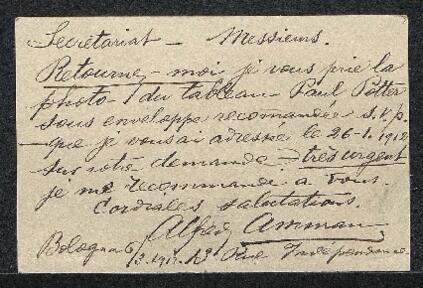 Secrétariat — Messieurs.
Retournez-moi je vous prie la
photo - du tableau Paul Potter
sous enveloppe recomandée S.V.p.
que je vous ai adressé le 26-1-1912
sur votre demande - très urgent
je me recommande à vous.
Cordiales salutations.
Alfred Amman
Bologna 6/3.1912. 13 Rue Indépendance